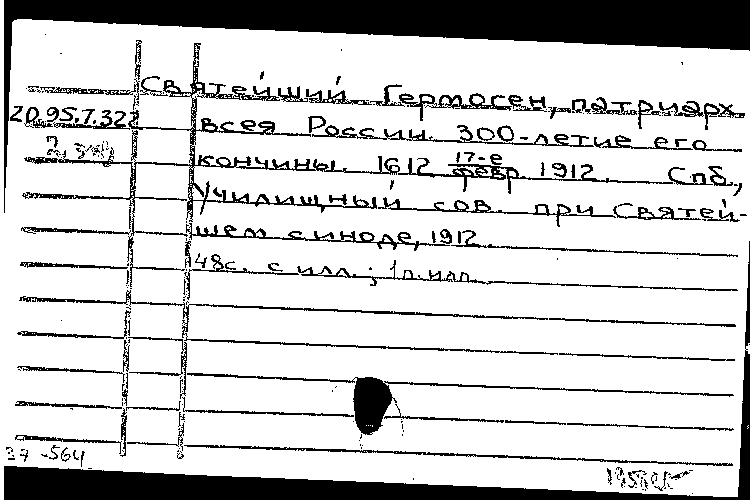 Святейший Гермоген, патриарх
20.95.7.322 всея России. 300-летие его
кончины. 1612 17-е февр. 1912. Спб.,
Училищный сов. при Святей-
шем синоде, 1912.
48с. с илл.; 1 л. илл.
37-564